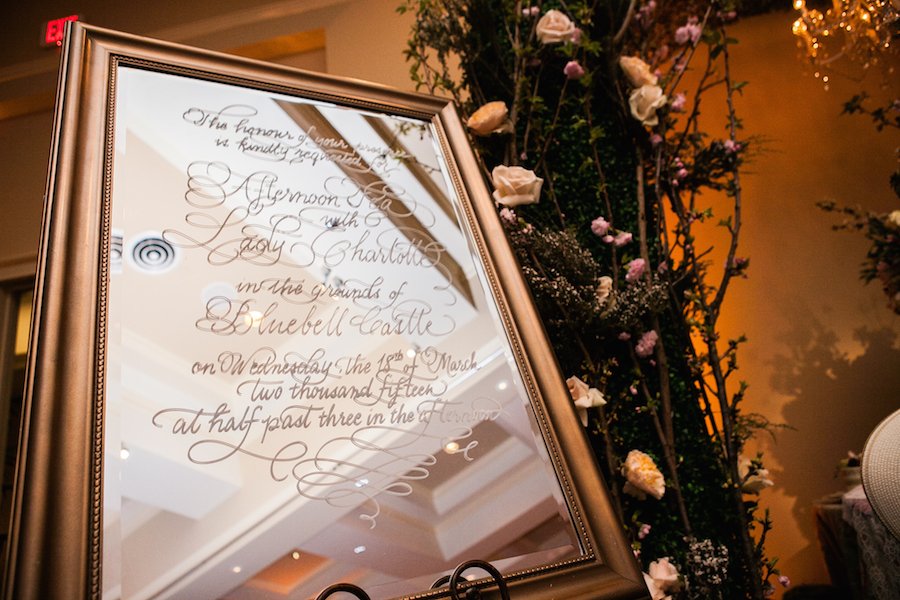 EXIT
The honour of your presence
is kindly requested for
Afternoon Tea
with
Lady Charlotte
in the grounds of
Bluebell Castle
on Wednesday the 18th of March
two thousand fifteen
at half past three in the afternoon